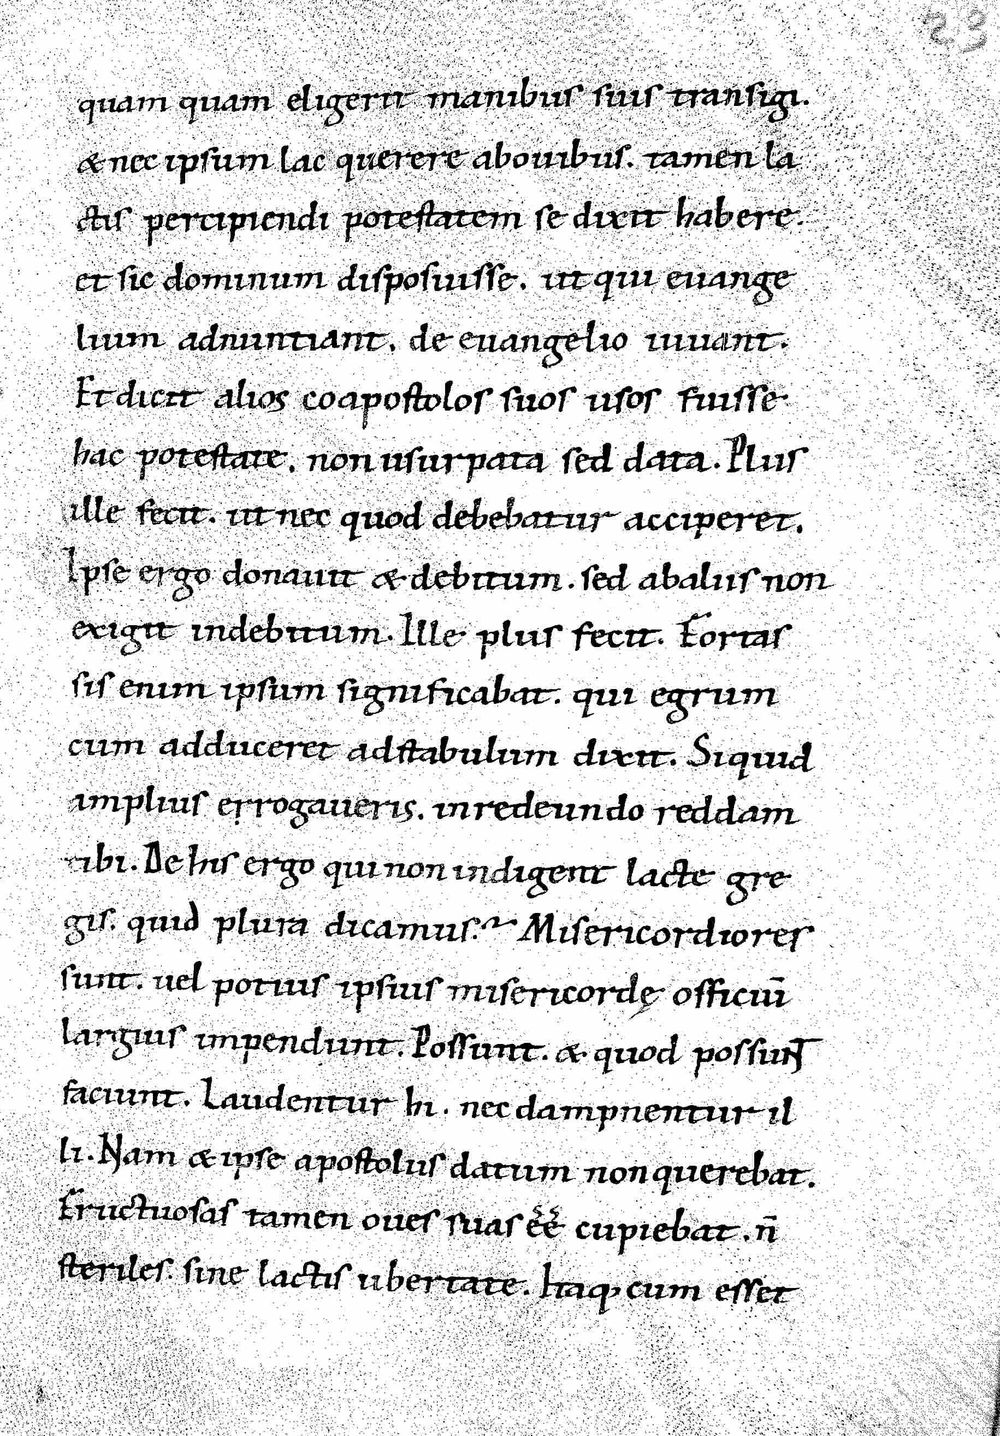 23
quam quam eligerit manibus suis transigi.
& nec ipsum lac querere abouibus. tamen la
ctis percipiendi potestatem se dixit habere.
et sic dominum disposiuisse. ut qui euange
lium adnuntiant. de euangelio uiuant.
Et dicit alios coapostolos suos usos fuisse
hac potestate. non usurpata sed data. Plus
ille fecit. ut nec quod debebatur acciperet.
Ipse ergo donauit & debitum. sed abaliis non
exigit indebitum. Ille plus fecit. Fortas
sis enim ipsum significabat. qui egrum
cum adduceret adstabulum dixit. Siquid
amplius errogaueris. inredeundo reddam
tibi. De his ergo qui non indigent lacte gre
gis. quid plura dicamus? Misericordiores
sunt. uel potius ipsius misericordę officiū
largius impendunt. Possunt. & quod possunt
faciunt. Laudentur hi. nec dampnentur il
li. Nam & ipse apostolus datum non querebat.
Fructuosas tamen oues suas ēē cupiebat. n̄
steriles. sine lactis ubertate. Itaq; cum esset